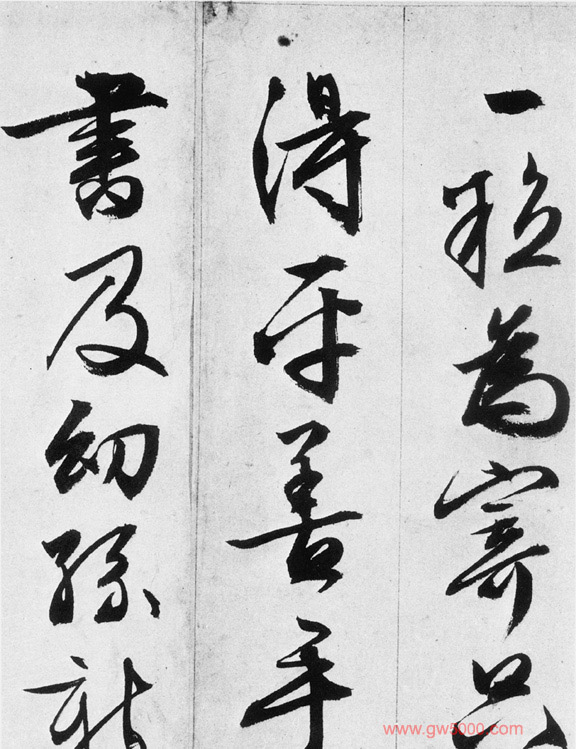 一粒為寄只
得平善手
書及幼孫新
www.gw5000.com